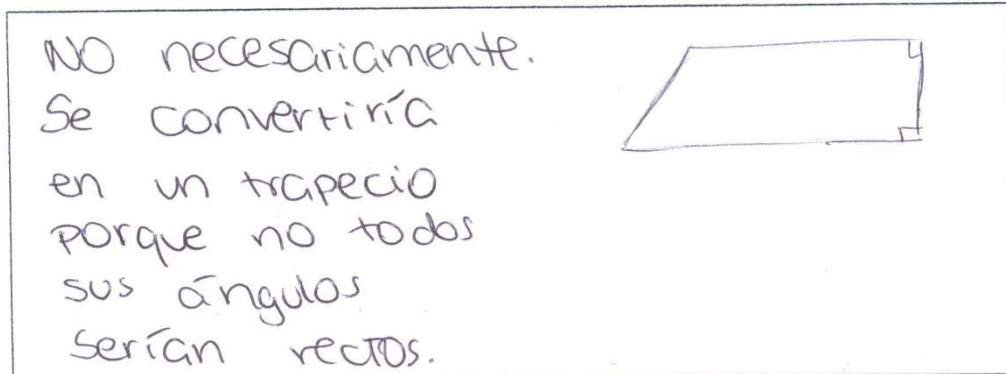 NO necesariamente.
Se convertiría
en un trapecio
porque no todos
sus ángulos
serían rectos.